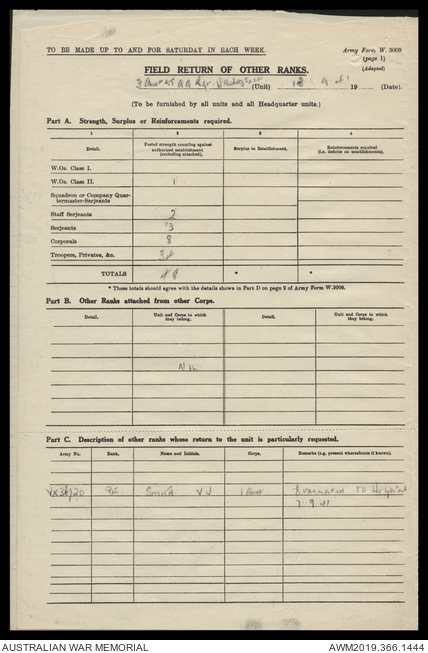 TO BE MADE UP TO AND FOR SATURDAY IN EACH WEEK.
Army Form W. 3009
(page 1)
(Adapted)
FIELD RETURN OF OTHER RANKS.
3 Aust LT AA Regt (Unit) 13 9 41 19 (Date).
(To be furnished by all units and all Headquarter units.)
Part A. Strength, Surplus or Reinforcements required.
1 2 3 4
Detail. Posted strength counting against authorised establishment (excluding attached). Surplus to Establishment. Reinforcements required (i.e. deficits on establishments).
W.Os. Class I.
W.Os. Class II. 1
Squadron or Company Quar-
termaster-Serjeants
Staff Serjeants 2
Serjeants 3
Corporals 8
Troopers, Privates, &c.
TOTALS * *
* These totals should agree with the details shown in Part D on page 2 of Army Form W.3009.
Part B. Other Ranks attached from other Corps.
Detail. Unit and Corps to which they belong. Detail. Unit and Corps to which they belong.
NIL
Part C. Description of other ranks whose return to the unit is particularly requested.
Army No. Rank. Name and Initials. Corps. Remarks (e.g. present whereabouts if known).
Smith VJ Evacuated TO Hospital
7.9.41
AUSTRALIAN WAR MEMORIAL
AWM2019.366.1444